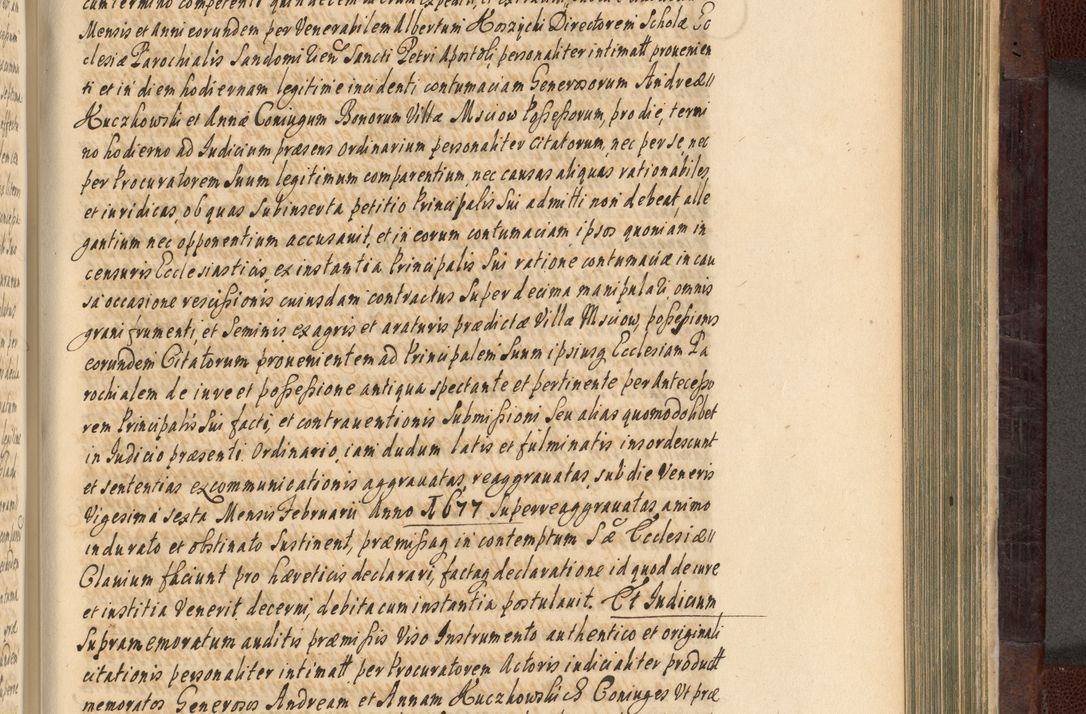 Mensis et Anni eorundem per Venerabilem Albertum Hoszycki Directorem Scholæ Ec
clesiæ Parochialis Sandomirien Sancti Petri Apostoli personaliter intimatt prouenien
ti et in diem hodiernam legitime incidenti contumaciam Generosorum Andreæ
Huczkowski et Annæ Coniugum Bonorum Villæ Msciow Poßeßorum, pro die, termi
no hodierno ad Iudicium præsens ordinarium personaliter citatorum, nec per se nec
per Procuratorem Suum legitimum comparentium, nec causas aliquas rationabiles
et iuridicas, ob quas Subinserta petitio Principalis Sui admitti non debeat, alle
gantium nec opponentium accusauit, et in eorum contumaciam ipsos quoniam in
censuris Ecclesiasticis ex instantia Principalis Sui ratione contumaciæ in cau
sa occasione resciſsionis cuiusdam contractus Super decima manipulati, omnis
grani frumenti, et Seminis, ex agris et araturis prædictæ Villæ Msciow, poßeßionis
eorundem Citatorum prouenientem ad Principalem Suum ipsiusq Ecclesiam Pa
rochialem de iure et poßeßione antiqua spectante et pertinente per Anteceßo
rem Principalis Sui facti, et contrauentionis Submißioni Seu alias quomodolibet
in Iudicio præsenti Ordinario, iam dudum latis et fulminatis insordescunt
et sententias excommunicationis aggrauatas, reaggrauatas, sub die Veneris
Vigesima Sexta Mensis Februarii Anno 1677 Superreaggrauatas, animo
indurato et obstinato Sustinent, præmißaq in contemptum Sæ Ecclesiæ
Clauium faciunt pro hæreticis declarari, factaq declaratione id quod de iure
et iustitia Venerit decerni, debita cum instantia postulauit. Et Iudicium
Supramemoratum auditis præmißis Viso Instrumento authentico et originali
citationis personaliter intimatt per Procuratorem Actoris indicialiter productt
memoratos Generosos Andream et Annam Huczkowskich Coniuges Vt præ